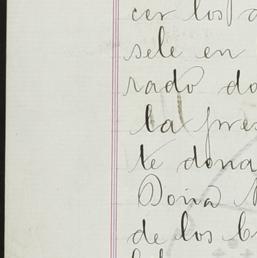 cer los
sele en
rado do
la pres
te dona
Doña
de los b